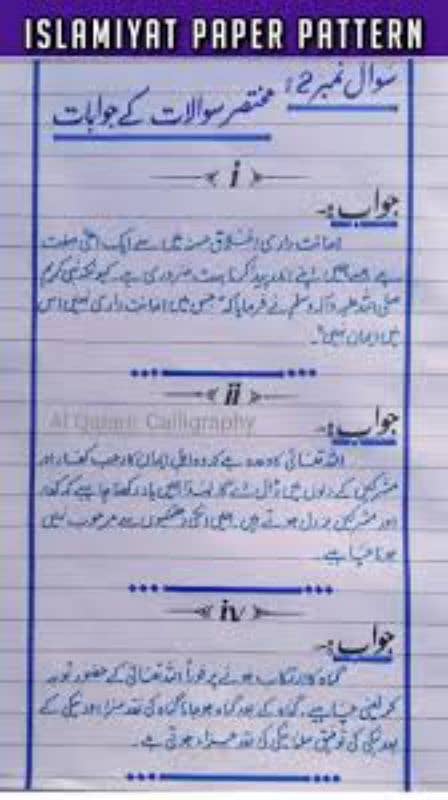 ISLAMIYAT PAPER PATTERN
سوال نمبر 2:
مختصر سوالات کے جوابات
i
جواب:-
امانت داری اخلاق حسنہ میں سے ایک اعلیٰ صفت
ہے جسے ہمیں اپنے اندر پیدا کرنا بہت ضروری ہے۔ کیونکہ نبی کریم
صلی اللہ علیہ وآلہ وسلم نے فرمایا کہ "جس میں امانت داری نہیں اس
میں ایمان نہیں"۔
ii
Al Qalam Calligraphy
جواب:-
اللہ تعالیٰ کا وعدہ ہے کہ وہ اہل ایمان کا رعب کفار اور
مشرکین کے دلوں میں ڈال دے گا لہذا ہمیں یاد رکھنا چاہیے کہ کفار
اور مشرکین بزدل ہوتے ہیں۔ ہمیں انکی دھمکیوں سے مرعوب نہیں
ہونا چاہیے۔
iv
جواب:-
گناہ کا ارتکاب ہونے پر فوراً اللہ تعالیٰ کے حضور توبہ
کر لینی چاہیے۔ گناہ کے بعد گناہ ہو جانا گناہ کی نقد سزا اور نیکی کے
بعد نیکی کی توفیق ملنا نیکی کی نقد جزاء ہوتی ہے۔